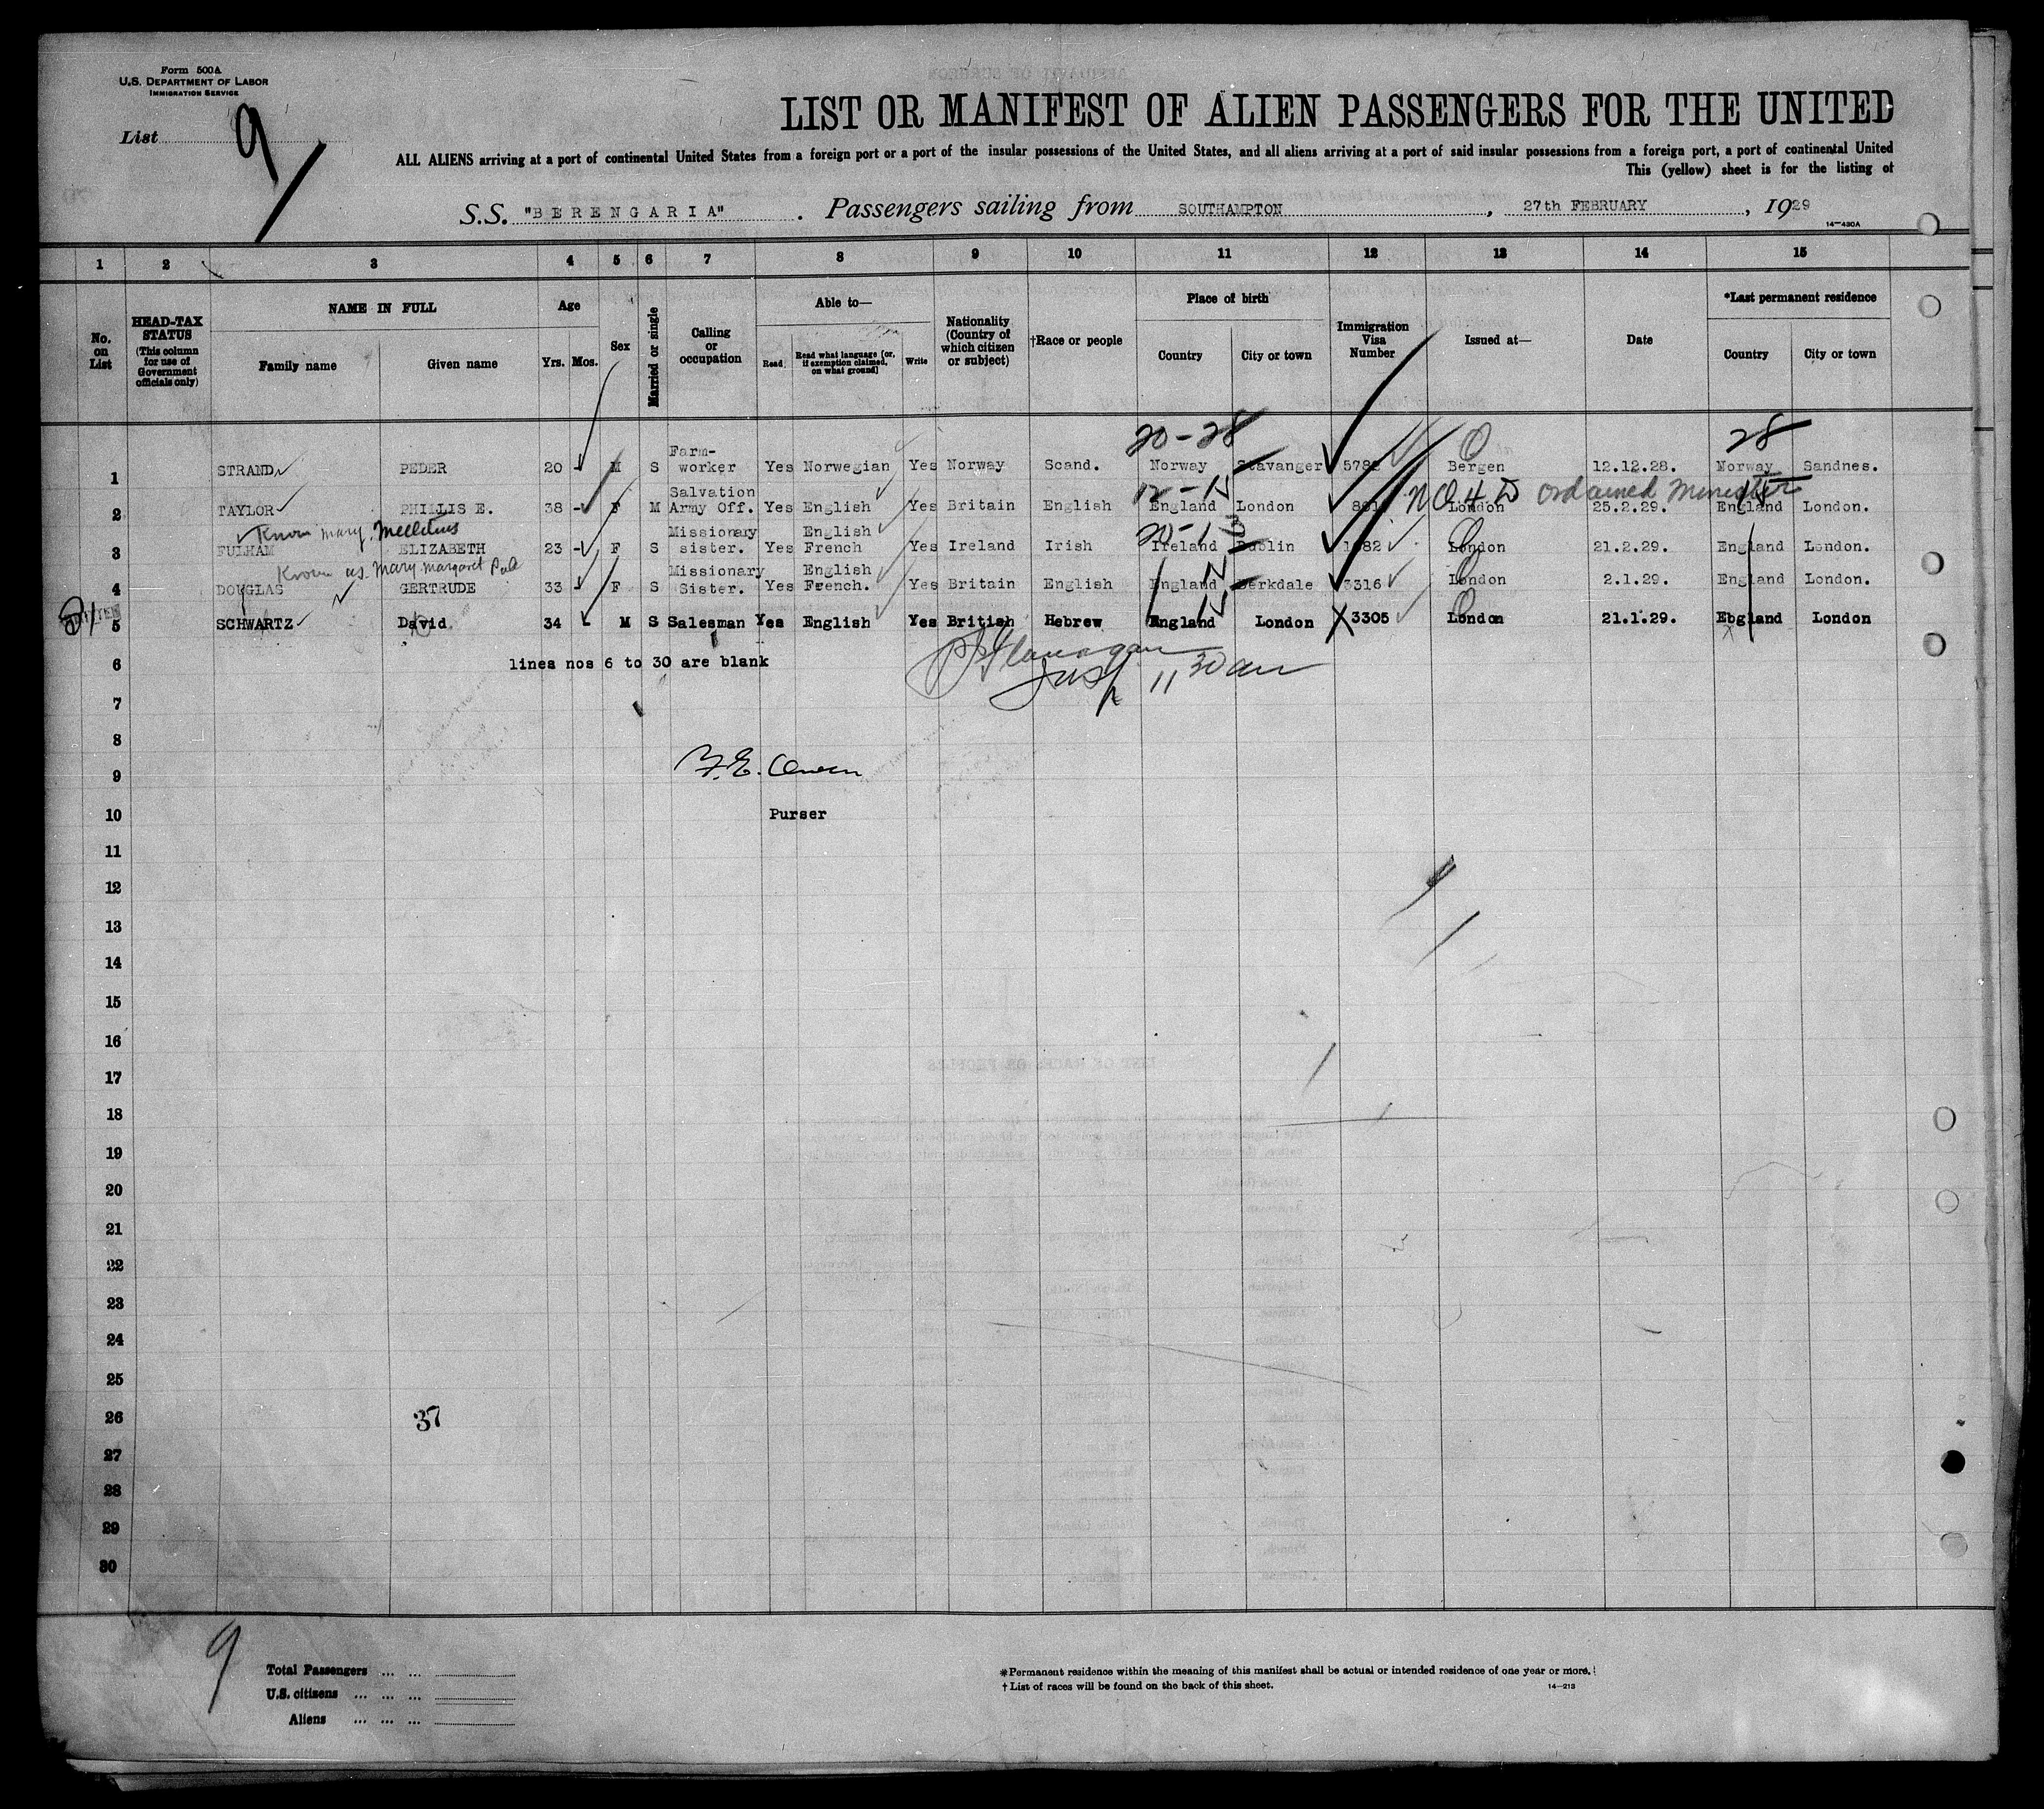 Form 500A
U.S. DEPARTMENT OF LABOR
IMMIGRATION SERVICE
List 9
LIST OR MANIFEST OF ALIEN PASSENGERS FOR THE UNITED
ALL ALIENS arriving at a port of continental United States from a foreign port or a port of the insular possessions of the United States, and all aliens arriving at a port of said insular possessions from a foreign port, a port of continental United
This (yellow) sheet is for the listing of
S.S. "BERENGARIA" . Passengers sailing from SOUTHAMPTON , 27th FEBRUARY , 1929
14—430A
1 2 3 4 5 6 7 8 9 10 11 12 13 14 15
No. on List
HEAD-TAX STATUS (This column for use of Government officials only)
NAME IN FULL
Family name Given name
Age
Yrs. Mos.
Sex
Married or single
Calling or occupation
Able to—
Read Read what language [or, if exemption claimed, on what ground] Write
Nationality (Country of which citizen or subject)
†Race or people
Place of birth
Country City or town
Immigration Visa Number
Issued at—
Date
*Last permanent residence
Country City or town
20-28 28
1 STRAND PEDER 20 - M S Farm-worker Yes Norwegian Yes Norway Scand. Norway Stavanger 578 Bergen 12.12.28. Norway Sandnes.
12-15 NO H D ordained minister 15
2 TAYLOR PHILLIS E. 38 - F M Salvation Army Off. Yes English Yes Britain English England London London 25.2.29. England London.
Known mary.
3 FULHAM ELIZABETH 23 - F S Missionary sister. Yes English French Yes Ireland Irish Ireland Dublin 1682 London 21.2.29. England London.
Known as Mary Margaret
4 DOUGLAS GERTRUDE 33 - F S Missionary Sister. Yes English French. Yes Britain English England Berkdale 3316 London 2.1.29. England London.
5 SCHWARTZ David 34 - M S Salesman Yes English Yes British Hebrew England London 3305 London 21.1.29. Ebgland London
6 lines nos 6 to 30 are blank
Flanagan
11 30 am
7
8
9 Owen
10 Purser
11
12
13
14
15
16
17
18
19
20
21
22
23
24
25
26 37
27
28
29
30
9
Total Passengers ... ...
U.S. citizens ... ... ...
Aliens ... ... ...
*Permanent residence within the meaning of this manifest shall be actual or intended residence of one year or more.
† List of races will be found on the back of this sheet.
14—213